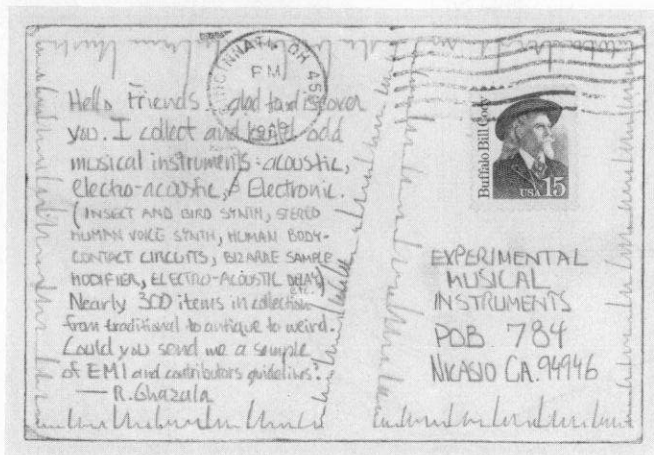 CINCINNATI, OH 45
PM
Hello friends. glad to discover
you. I collect and build odd
musical instruments: acoustic,
electro-acoustic, & Electronic.
(INSECT AND BIRD SYNTH, STEREO
HUMAN VOICE SYNTH, HUMAN BODY-
CONTACT CIRCUITS, BIZARRE SAMPLE
MODIFIER, ELECTRO-ACOUSTIC DELAY,
ETC.)
Nearly 300 items in collection
from traditional to antique to weird.
Could you send me a sample
of EMI and contributors guidelines?
— R. Ghazala
Buffalo Bill Cody
USA 15
EXPERIMENTAL
MUSICAL
INSTRUMENTS
POB 784
NICASIO CA. 94946